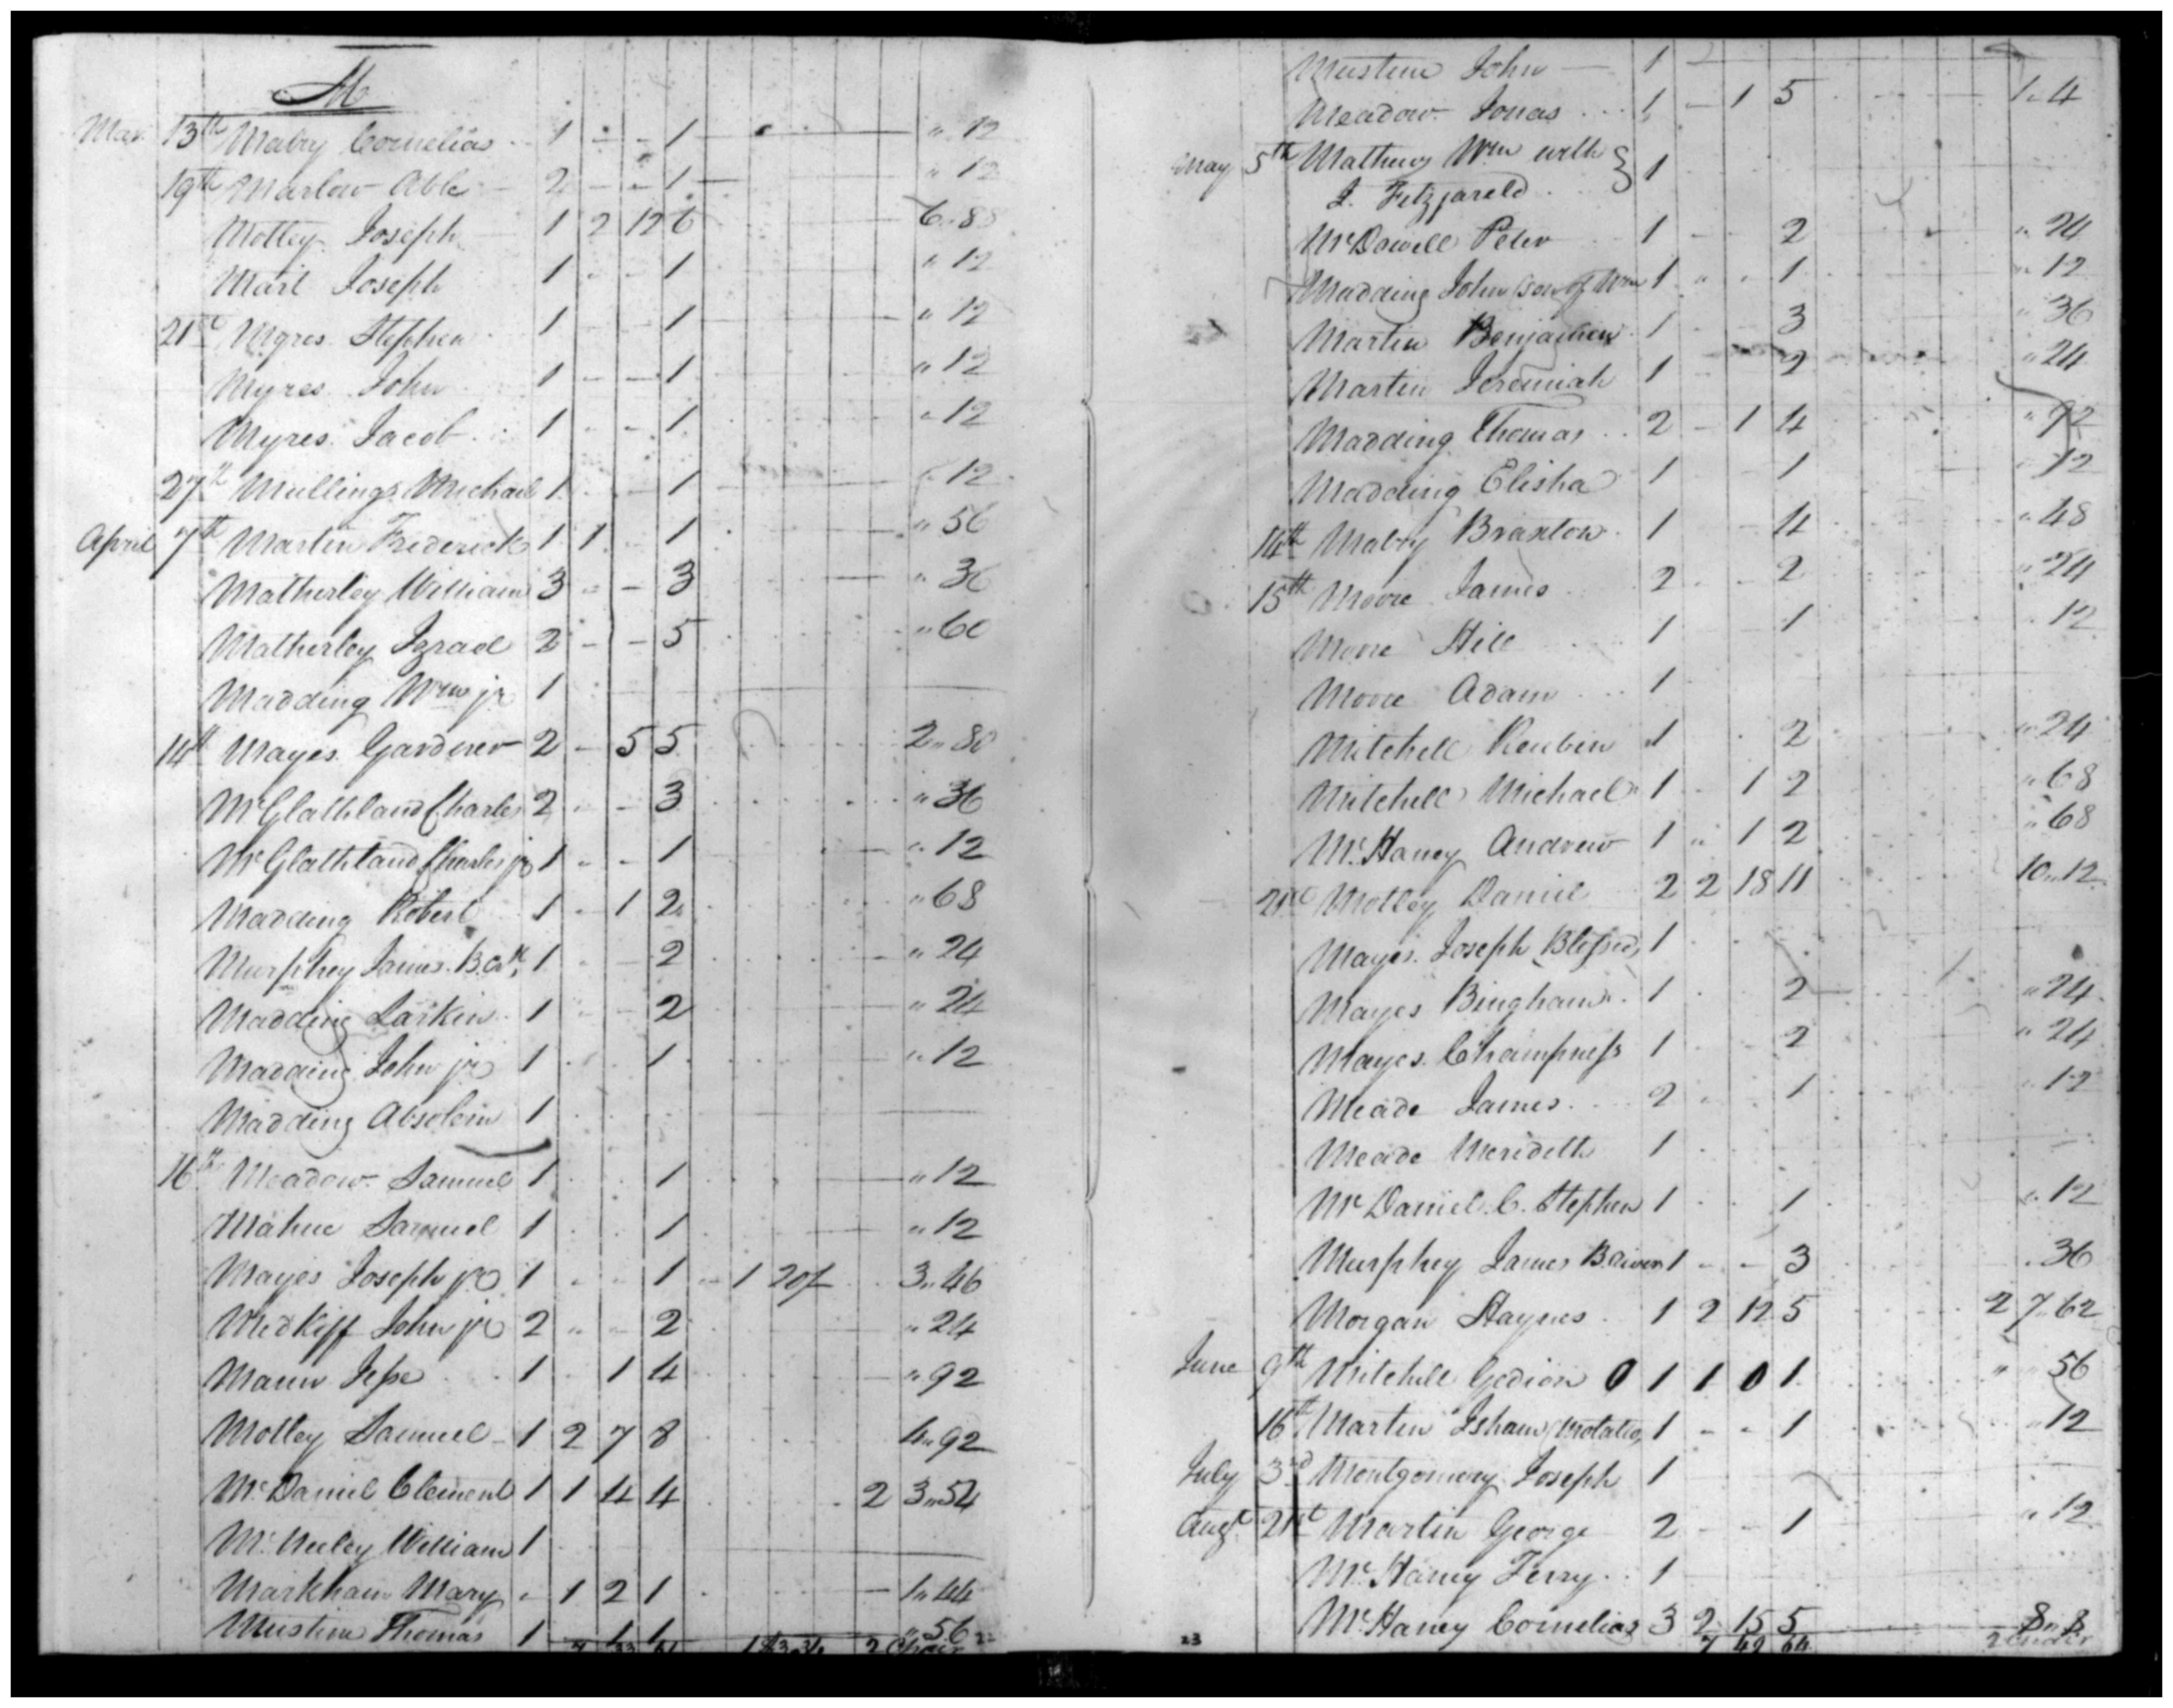 M
Mar. 13th Mabry Cornelias 1 - - 1 " 12
19th Marlow Able 2 - - 1 " 12
Motley Joseph 1 2 12 6 6.88
Mart Joseph 1 - - 1 " 12
21st Myres Stephen 1 - - 1 " 12
Myres John 1 - - 1 " 12
Myres Jacob 1 - - 1 " 12
27th Mullings Michael 1 - - 1 " 12
April 7th Martin Frederick 1 1 - 1 " 56
Matherley William 3 - - 3 " 36
Matherley Izrael 2 - - 5 " 60
Madding Wm jr 1
14th Mayes Gardener 2 - 5 5 2 " 80
McGlathland Charles 2 - - 3 " 36
McGlathland Charles jr 1 - - 1 " 12
Madding Robert 1 - 1 2 " 68
Murphey James 1 - - 2 " 24
Madding Larkin 1 - - 2 " 24
Madding John jr 1 - - 1 " 12
Madding Absolem 1
16th Meadow Samuel 1 - - 1 " 12
Mahue Samuel 1 - - 1 " 12
Mayes Joseph jr 1 - - 1 - 1 20/ 3 " 46
Medkiff John jr 2 " - 2 " 24
Mann Jesse 1 - 1 4 " 92
Motley Samuel 1 2 7 8 4 " 92
McDaniel Clement 1 1 4 4 2 3 " 54
McNeeley William 1
Markham Mary - 1 2 1 1 " 44
Mustine Thomas 1 1 1 " 56
2 Chair
Mustine John 1
Meadow Jonas 1 - 1 5 1 " 4
May 5th Mathews Wm with } 1
J. Fitzjareld
McDowell Peter 1 - - 2 " 24
Madding John (son of Wm 1 " " 1 " 12
Martin Benjamien 1 - - 3 " 36
Martin Jeremiah 1 - - 2 " 24
Madding Thomas 2 - 1 4 " 92
Madding Elisha 1 - 1 " 12
14th Mabry Braxton 1 - 4 " 48
15th Moore James 2 - - 2 " 24
Moore Hill 1 - 1 " 12
Moore Adam 1
Mitchell Reubin 1 - 2 " 24
Mitchell Michael 1 - 1 2 " 68
McHaney Andrew 1 " 1 2 " 68
21st Motley Daniel 2 2 18 11 10 " 12
Mayes Joseph Blessed 1
Mayes Bingham 1 - 2 " 24
Mayes Champness 1 - - 2 " 24
Meade James 2 - - 1 " 12
Meade Meredeth 1
McDaniel C. Stephen 1 - - 1 " 12
Murphey James B.River 1 - - 3 " 36
Morgan Haynes 1 2 12 5 2 7.62
June 9th Mitchell Gedion 0 1 1 0 1 " 56
16th Martin Isham (Molatio, 1 - - 1 " 12
July 3rd Montgomery Joseph 1
Augt. 21st Martin George 2 - - 1 " 12
McHaney Terry 1
McHaney Cornelias 3 2 15 5 8 " 8
23 7 49 64